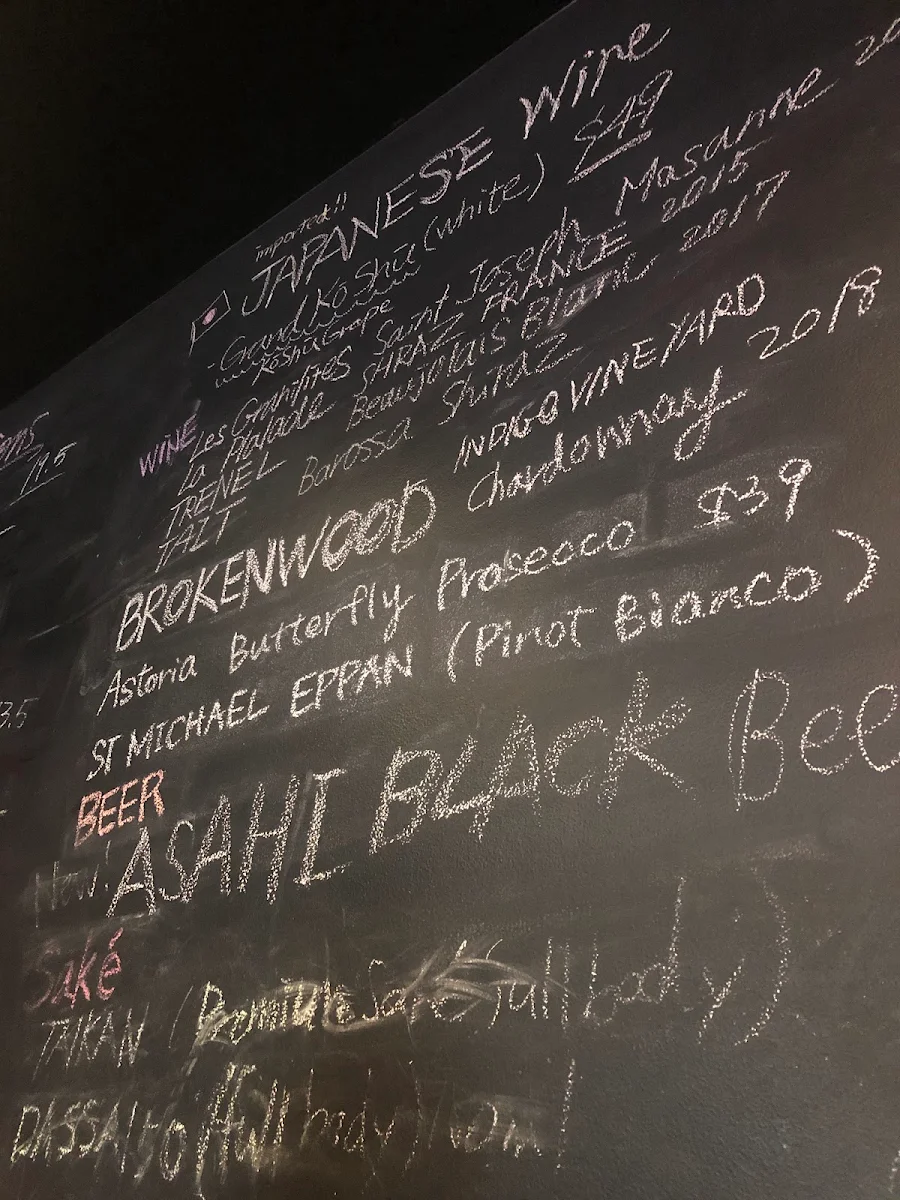 imported!!
JAPANESE Wine
Grand Koshu (white) $49
Koshu Grape
WINE
Les Granites Saint Joseph Masanne 20
La Malade SHIRAZ FRANCE 2015
TRENEL Beaujolais Blanc 2017
TAIT Barossa Shiraz
BROKENWOOD INDIGO VINEYARD Chardonnay 2018
Astoria Butterfly Prosecco $39
ST MICHAEL EPPAN (Pinot Bianco)
BEER
New! ASAHI BLAck Bee
Saké
TAIKAN ( Sake full body)
DASSAI 50 (full body)
11.5
3.5